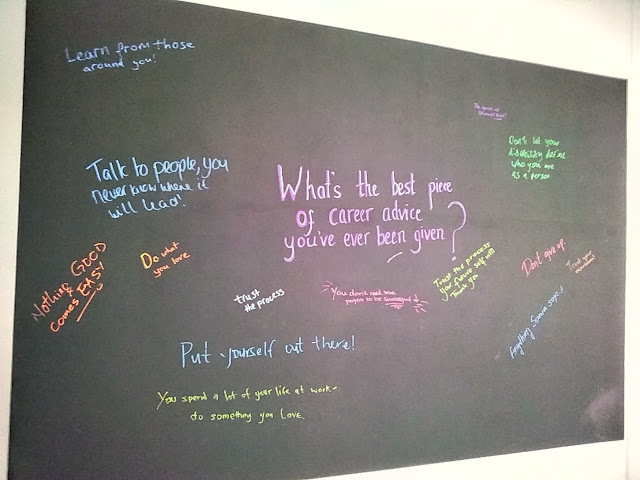 Learn from those
around you!
Don't let your
disability define
who you are
as a person
Talk to people, you
never know where it
will lead!
What's the best piece
of career advice
you've ever been given?
Nothing GOOD
comes EASY
Do what
you love
trust
the process
You don't need
to be
Trust the process
your future self will
thank you
Don't give up
Trust your
Put yourself out there!
Anything says!
You spend a lot of your life at work -
do something you Love.